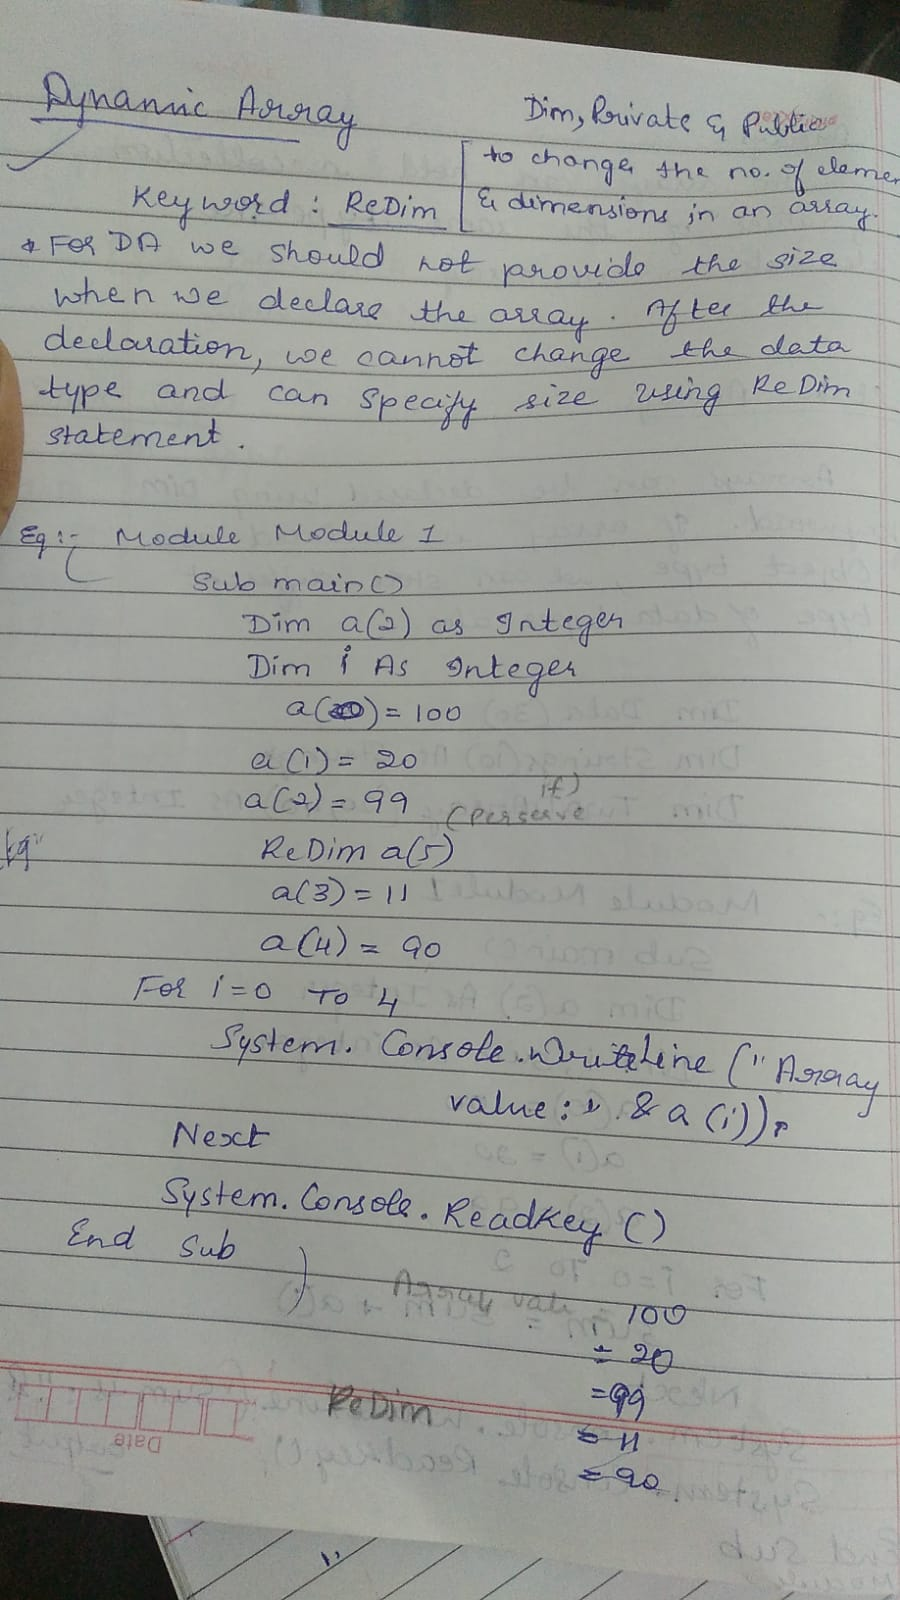 Dynamic Array
Dim, Private & Public
to change the no. of elemen
Keyword : ReDim
& dimensions in an array.
* For DA we should not provide the size
when we declare the array. After the
declaration, we cannot change the data
type and can specify size using ReDim
statement.
Eg :- Module Module 1
Sub main()
Dim a(2) as Integer
Dim i As Integer
a(0) = 100
a(1) = 20
a(2) = 99
(Perserve if)
Eg"
ReDim a(5)
a(3) = 11
a(4) = 90
For i=0 To 4
System. Console.WriteLine (" Array
value: " & a (i))
Next
System. Console. ReadKey ()
End Sub
Array valu
100
= 20
= 99
ReDim
= 11
= 90
Date